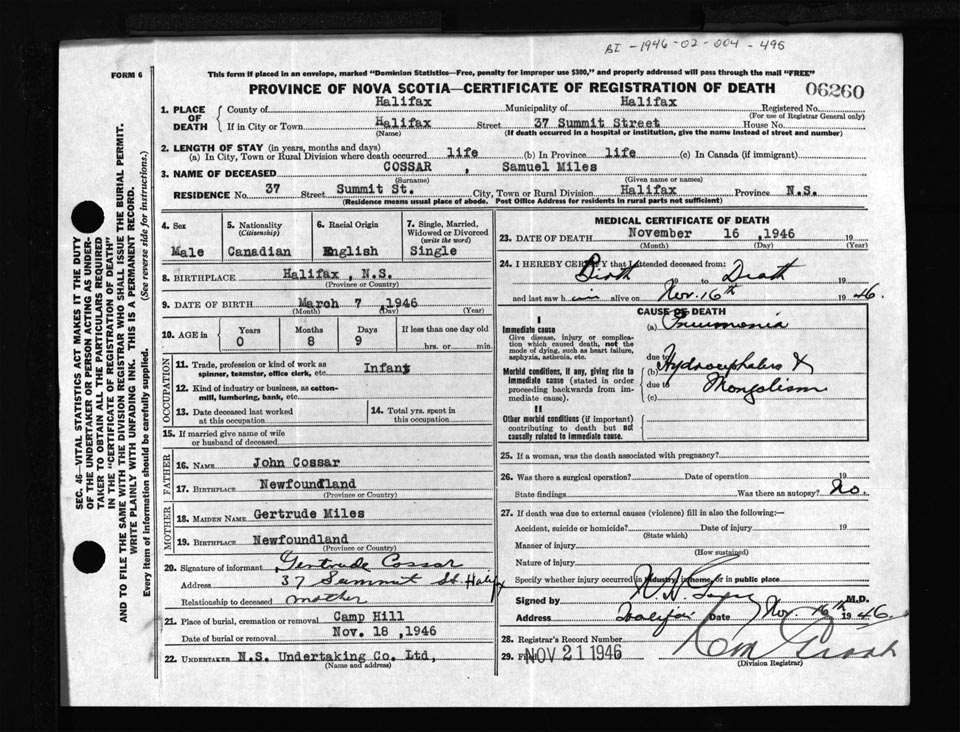 BI - 1946-02-004-496
FORM 6
This form if placed in an envelope, marked "Dominion Statistics—Free, penalty for improper use $300," and properly addressed will pass through the mail "FREE"
PROVINCE OF NOVA SCOTIA—CERTIFICATE OF REGISTRATION OF DEATH 06260
SEC. 46—VITAL STATISTICS ACT MAKES IT THE DUTY
OF THE UNDERTAKER OR PERSON ACTING AS UNDER-
TAKER TO OBTAIN ALL THE PARTICULARS REQUIRED
IN THE "CERTIFICATE OF REGISTRATION OF DEATH"
AND TO FILE THE SAME WITH THE DIVISION REGISTRAR WHO SHALL ISSUE THE BURIAL PERMIT.
WRITE PLAINLY WITH UNFADING INK. THIS IS A PERMANENT RECORD.
Every item of information should be carefully supplied. (See reverse side for instructions.)
1. PLACE OF DEATH
County of Halifax Municipality of Halifax Registered No.
(For use of Registrar General only)
If in City or Town Halifax Street 37 Summit Street House No.
(Name) (If death occurred in a hospital or institution, give the name instead of street and number)
2. LENGTH OF STAY (in years, months and days)
(a) In City, Town or Rural Division where death occurred life (b) In Province life (c) In Canada (if immigrant)
3. NAME OF DECEASED COSSAR , Samuel Miles
(Surname) (Given name or names)
RESIDENCE No. 37 Street Summit St. City, Town or Rural Division Halifax Province N.S.
(Residence means usual place of abode. Post Office Address for residents in rural parts not sufficient)
4. Sex 5. Nationality (Citizenship) 6. Racial Origin 7. Single, Married, Widowed or Divorced (write the word)
Male Canadian English Single
8. BIRTHPLACE Halifax, N.S.
(Province or Country)
9. DATE OF BIRTH March 7 ,1946
(Month) (Day) (Year)
10. AGE in Years Months Days If less than one day old
0 8 9 hrs. or min.
OCCUPATION
11. Trade, profession or kind of work as spinner, teamster, office clerk, etc. Infant
12. Kind of industry or business, as cotton-mill, lumbering, bank, etc.
13. Date deceased last worked at this occupation
14. Total yrs. spent in this occupation
15. If married give name of wife or husband of deceased
FATHER
16. NAME John Cossar
17. BIRTHPLACE Newfoundland
(Province or Country)
MOTHER
18. MAIDEN NAME Gertrude Miles
19. BIRTHPLACE Newfoundland
(Province or Country)
20. Signature of informant Gertrude Cossar
Address 37 Summit St. Halifax
Relationship to deceased mother
21. Place of burial, cremation or removal Camp Hill
Date of burial or removal Nov. 18 ,1946
22. UNDERTAKER N.S. Undertaking Co. Ltd,
(Name and address)
MEDICAL CERTIFICATE OF DEATH
23. DATE OF DEATH November 16 ,1946 19
(Month) (Day) (Year)
24. I HEREBY CERTIFY that I attended deceased from:
Birth to Death 19
and last saw him alive on Nov. 16th 1946.
CAUSE OF DEATH
I
Immediate cause (a) Pneumonia
Give disease, injury or complication which caused death, not the mode of dying, such as heart failure, asphyxia, asthenia, etc.
due to
(b) Hydrocephalus &
Morbid conditions, if any, giving rise to immediate cause (stated in order proceeding backwards from immediate cause).
due to Mongolism
(c)
II
Other morbid conditions (if important) contributing to death but not causally related to immediate cause.
25. If a woman, was the death associated with pregnancy?
26. Was there a surgical operation? Date of operation 19
State findings Was there an autopsy? No.
27. If death was due to external causes (violence) fill in also the following:—
Accident, suicide or homicide? Date of injury 19
(State which)
Manner of injury
(How sustained)
Nature of injury
Specify whether injury occurred in industry, in home, or in public place
Signed by M.D.
Address Halifax Date Nov. 16th 1946
28. Registrar's Record Number
29. Filed NOV 21 1946
(Division Registrar)